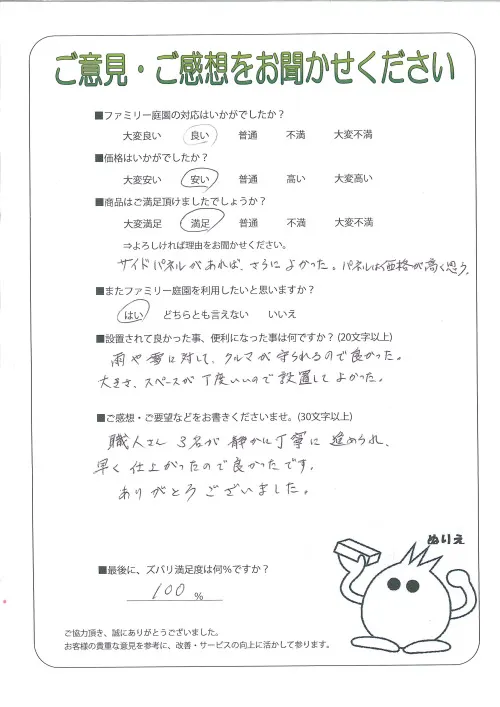 ご意見・ご感想をお聞かせください
■ファミリー庭園の対応はいかがでしたか？
大変良い 良い 普通 不満 大変不満
■価格はいかがでしたか？
大変安い 安い 普通 高い 大変高い
■商品はご満足頂けましたでしょうか？
大変満足 満足 普通 不満 大変不満
⇒よろしければ理由をお聞かせください。
サイドパネルがあれば、さらによかった。パネルは価格が高く思う。
■またファミリー庭園を利用したいと思いますか？
はい どちらとも言えない いいえ
■設置されて良かった事、便利になった事は何ですか？(20文字以上)
雨や雪に対して、クルマが守られるので良かった。
大きさ、スペースが丁度いいので設置してよかった。
■ご感想・ご要望などをお書きくださいませ。(30文字以上)
職人さん3名が静かに丁寧に進められ、
早く仕上がったので良かったです。
ありがとうございました。
ぬりえ
■最後に、ズバリ満足度は何%ですか？
100 %
ご協力頂き、誠にありがとうございました。
お客様の貴重な意見を参考に、改善・サービスの向上に活かして参ります。